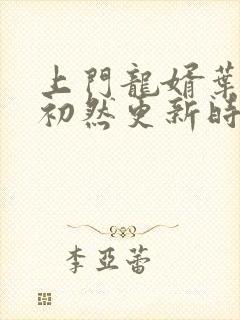 上門龍婿葉
初然更新時
李亞蕾